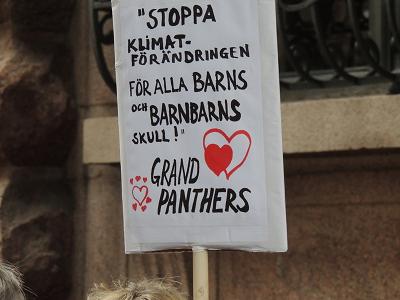 "STOPPA
KLIMAT-
FÖRÄNDRINGEN
FÖR ALLA BARNS
OCH BARNBARNS
SKULL!"
GRAND
PANTHERS